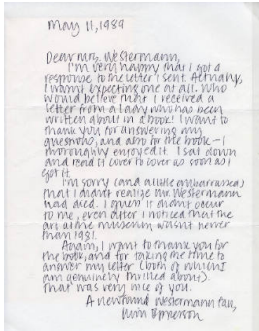 May 11, 1989
Dear Mrs. Westermann,
I'm very happy that I got a
response to the letter I sent. Actually,
I wasn't expecting one at all. Who
would believe that I received a
letter from a lady who has been
written about in a book! I want to
thank you for answering my
questions, and also for the book—I
thoroughly enjoyed it. I sat down
and read it cover to cover as soon as I
got it.
I'm sorry (and a little embarrassed)
that I didn't realize Mr. Westermann
had died. I guess it didn't occur
to me, even after I noticed that the
art alone museum wasn't newer
than 1981.
Again, I want to thank you for
the book, and for taking the time to
answer my letter (both of which I
am genuinely thrilled about).
That was very nice of you.
A newfound Westermann fan,